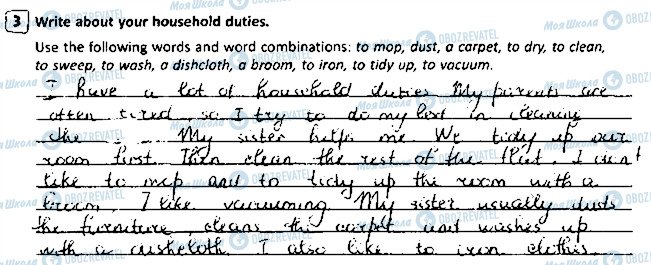 3 Write about your household duties.
Use the following words and word combinations: to mop, dust, a carpet, to dry, to clean,
to sweep, to wash, a dishcloth, a broom, to iron, to tidy up, to vacuum.
I have a lot of household duties. My parents are
often tired, so I try to do my best in cleaning
the My sister helps me. We tidy up our
room first. Then clean the rest of the flat. I don't
like to mop and to tidy up the room with a
broom. I like vacuuming. My sister usually dusts
the furniture, cleans the carpet and washes up
with a dishcloth. I also like to iron clothes.
Моя Школа OBOZREVATEL